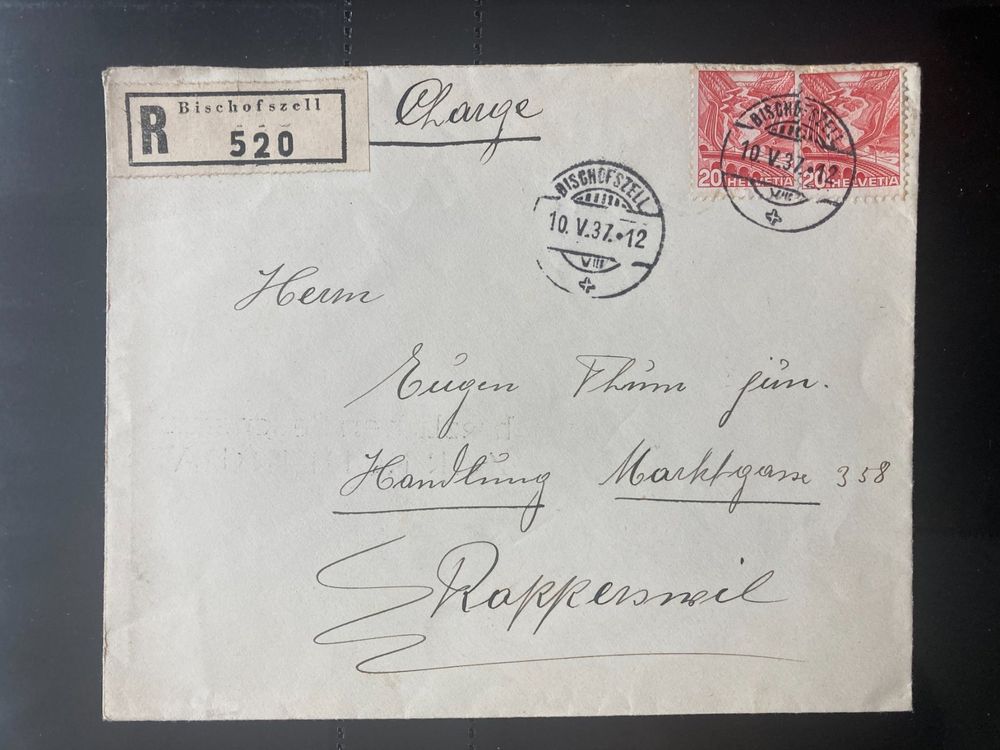 R Bischofszell
520
Charge
20 HELVETIA 20 HELVETIA
BISCHOFSZELL
10. V. 37. • 12
VIII
BISCHOFSZELL
10. V. 37. • 12
VIII
Herrn
Eugen Thum jun.
Handlung Marktgasse 358
Rapperswil